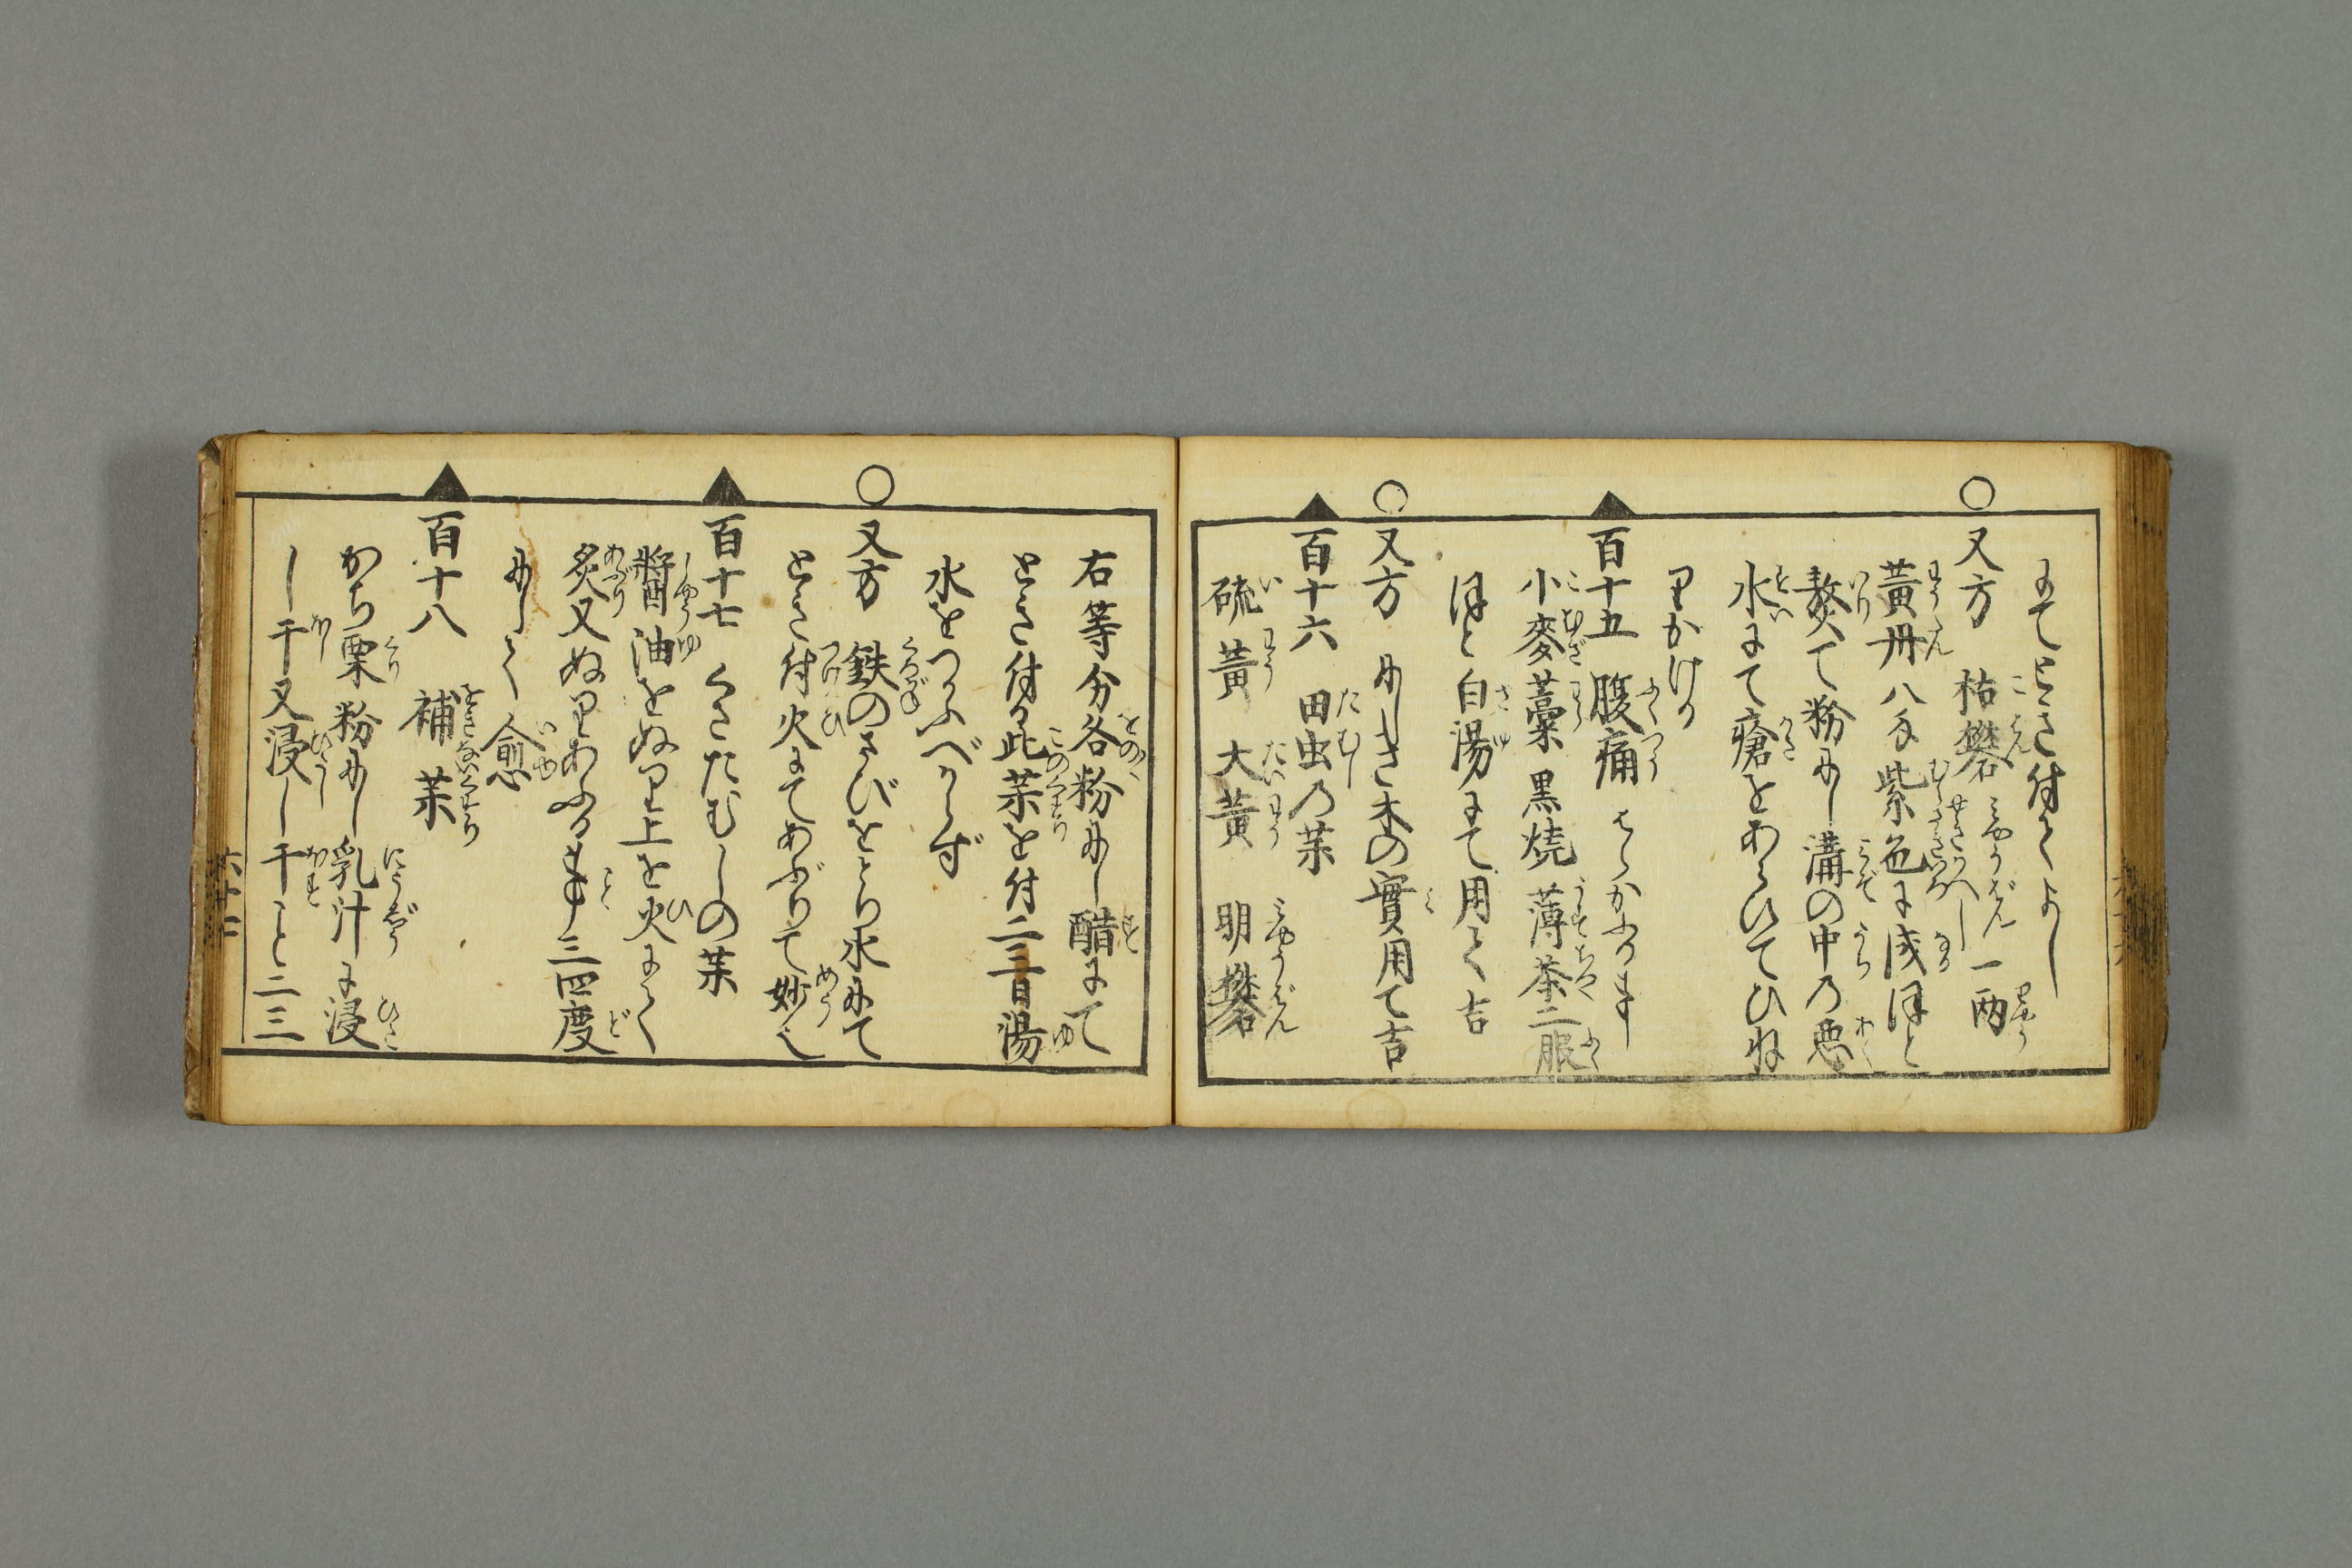 にてとき付てよし
又方　枯礬 一両
黄丹八分紫色に成ほと
熬て粉にし溝の中の悪
水にて瘡をあらひてひね
りかける
百十五　腹痛
小麥藁黒焼薄茶二服
ほと白湯にて用て吉
又方　にしき木の實用て吉
百十六　田虫の薬
硫黄　大黄　明礬
右等分各粉にし醋にて
とき付る此薬を付二三日湯
水をつかふべからず
又方　鉄のさびをとり水にて
とき付火にてあぶりて妙也
百十七　くさたむしの薬
醤油をぬり上を火にて
炙又ぬりあふる事三四度
にして愈
百十八　補薬
かち栗粉にし乳汁に浸
し干又浸し干こと二三
六十二